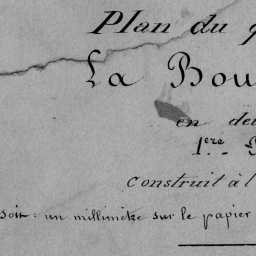 Plan du
La Bou
en de
1ère
construit à l
soit: un millimètre sur le papier